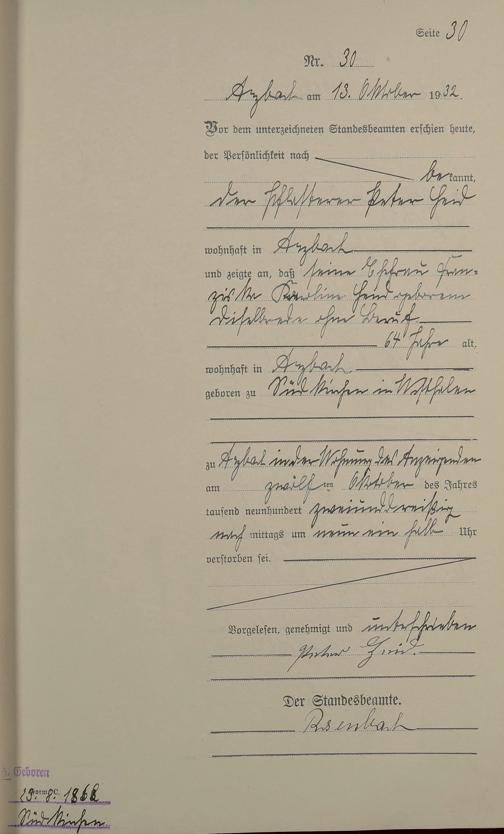 Seite 30
Nr. 30
Arzbach am 13. Oktober 1932.
Vor dem unterzeichneten Standesbeamten erschien heute,
der Persönlichkeit nach
bekannt,
der Pflasterer Peter Heid
wohnhaft in Arzbach
und zeigte an, daß seine Ehefrau Fran-
ziska Karoline Heid geborene
ohne Beruf
64 Jahre alt,
wohnhaft in Arzbach
geboren zu Südkirchen in Westfalen
zu Arzbach in der Wohnung des Anzeigenden
am zwölften Oktober des Jahres
tausend neunhundert zweiunddreißig
nachmittags um neun ein halb Uhr
verstorben sei.
Vorgelesen, genehmigt und unterschrieben
Peter Heid.
Der Standesbeamte.
Geboren
1868
Südkirchen